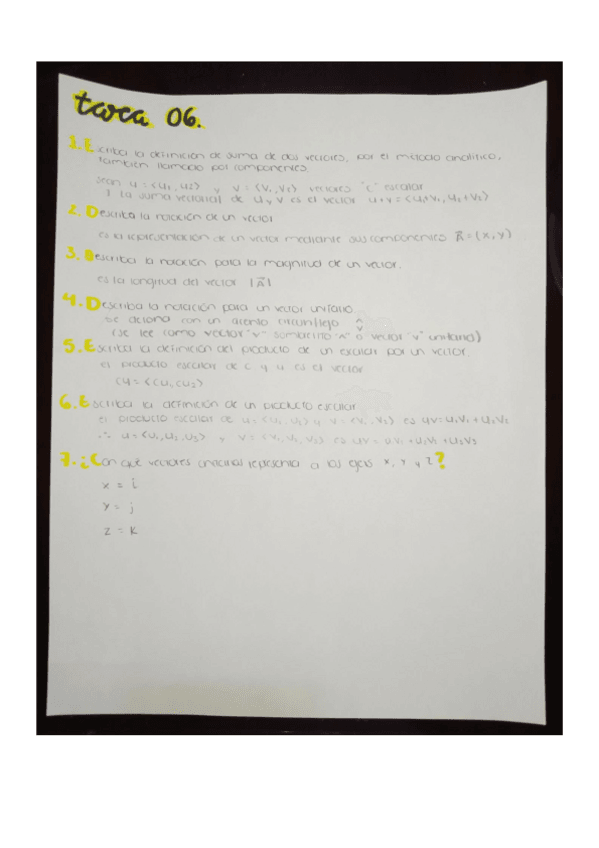 tarea 06.
1. Escriba la definición de suma de dos vectores, por el método analítico,
también llamado por componentes
sean u = <u₁, u₂> y v = <v₁, v₂> vectores "c" escalar
la suma vectorial de u y v es el vector u+v = <u₁+v₁, u₂+v₂>
2. Describa la notación de un vector
es la representación de un vector mediante sus componentes A⃗ = (x, y)
3. Describa la notación para la magnitud de un vector.
es la longitud del vector |A⃗|
4. Describa la notación para un vector unitario.
se denota con un acento circunflejo v̂
(se lee como vector "v" sombrerito "^" o vector "v" unitario)
5. Escriba la definición del producto de un escalar por un vector.
el producto escalar de c y u es el vector
cu = <cu₁, cu₂>
6. Escriba la definición de un producto escalar
el producto escalar de u = <u₁, u₂> y v = <v₁, v₂> es uv = u₁v₁ + u₂v₂
∴ u = <u₁, u₂, u₃> y v = <v₁, v₂, v₃> es uv = u₁v₁ + u₂v₂ + u₃v₃
7. ¿Con qué vectores unitarios representa a los ejes x, y y z?
x = i
y = j
z = k